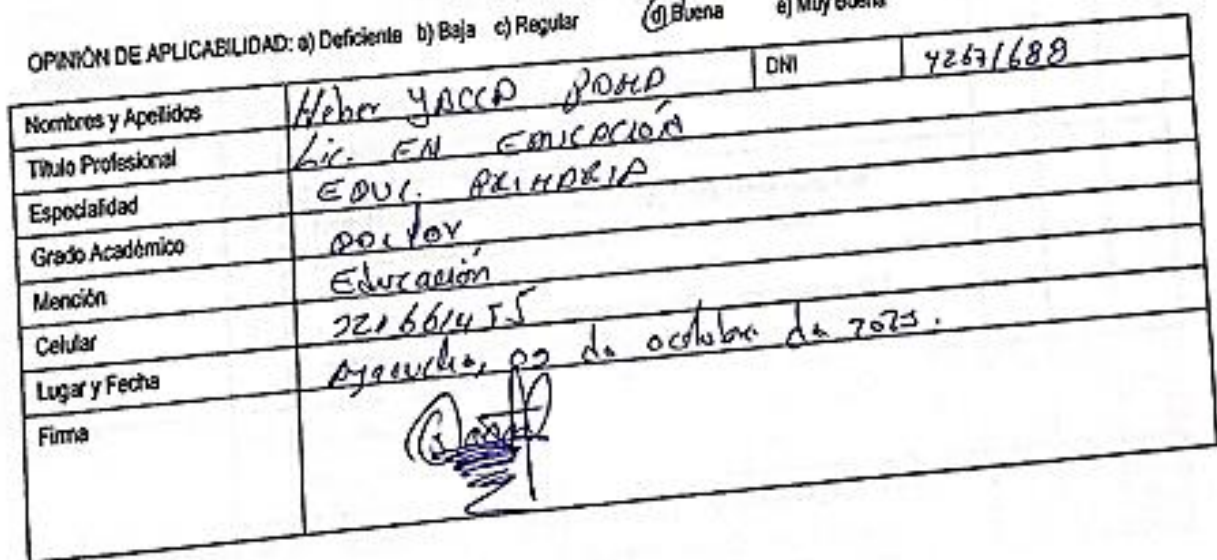 OPINIÓN DE APLICABILIDAD: a) Deficiente b) Baja c) Regular d) Buena e) Muy Buena
Nombres y Apellidos Heber YACCA POMA DNI 42671688
Título Profesional Lic. EN EDUCACIÓN
Especialidad EDUC. PRIMARIA
Grado Académico DOCTOR
Mención Educación
Celular
Lugar y Fecha Ayacucho, de octubre de
Firma